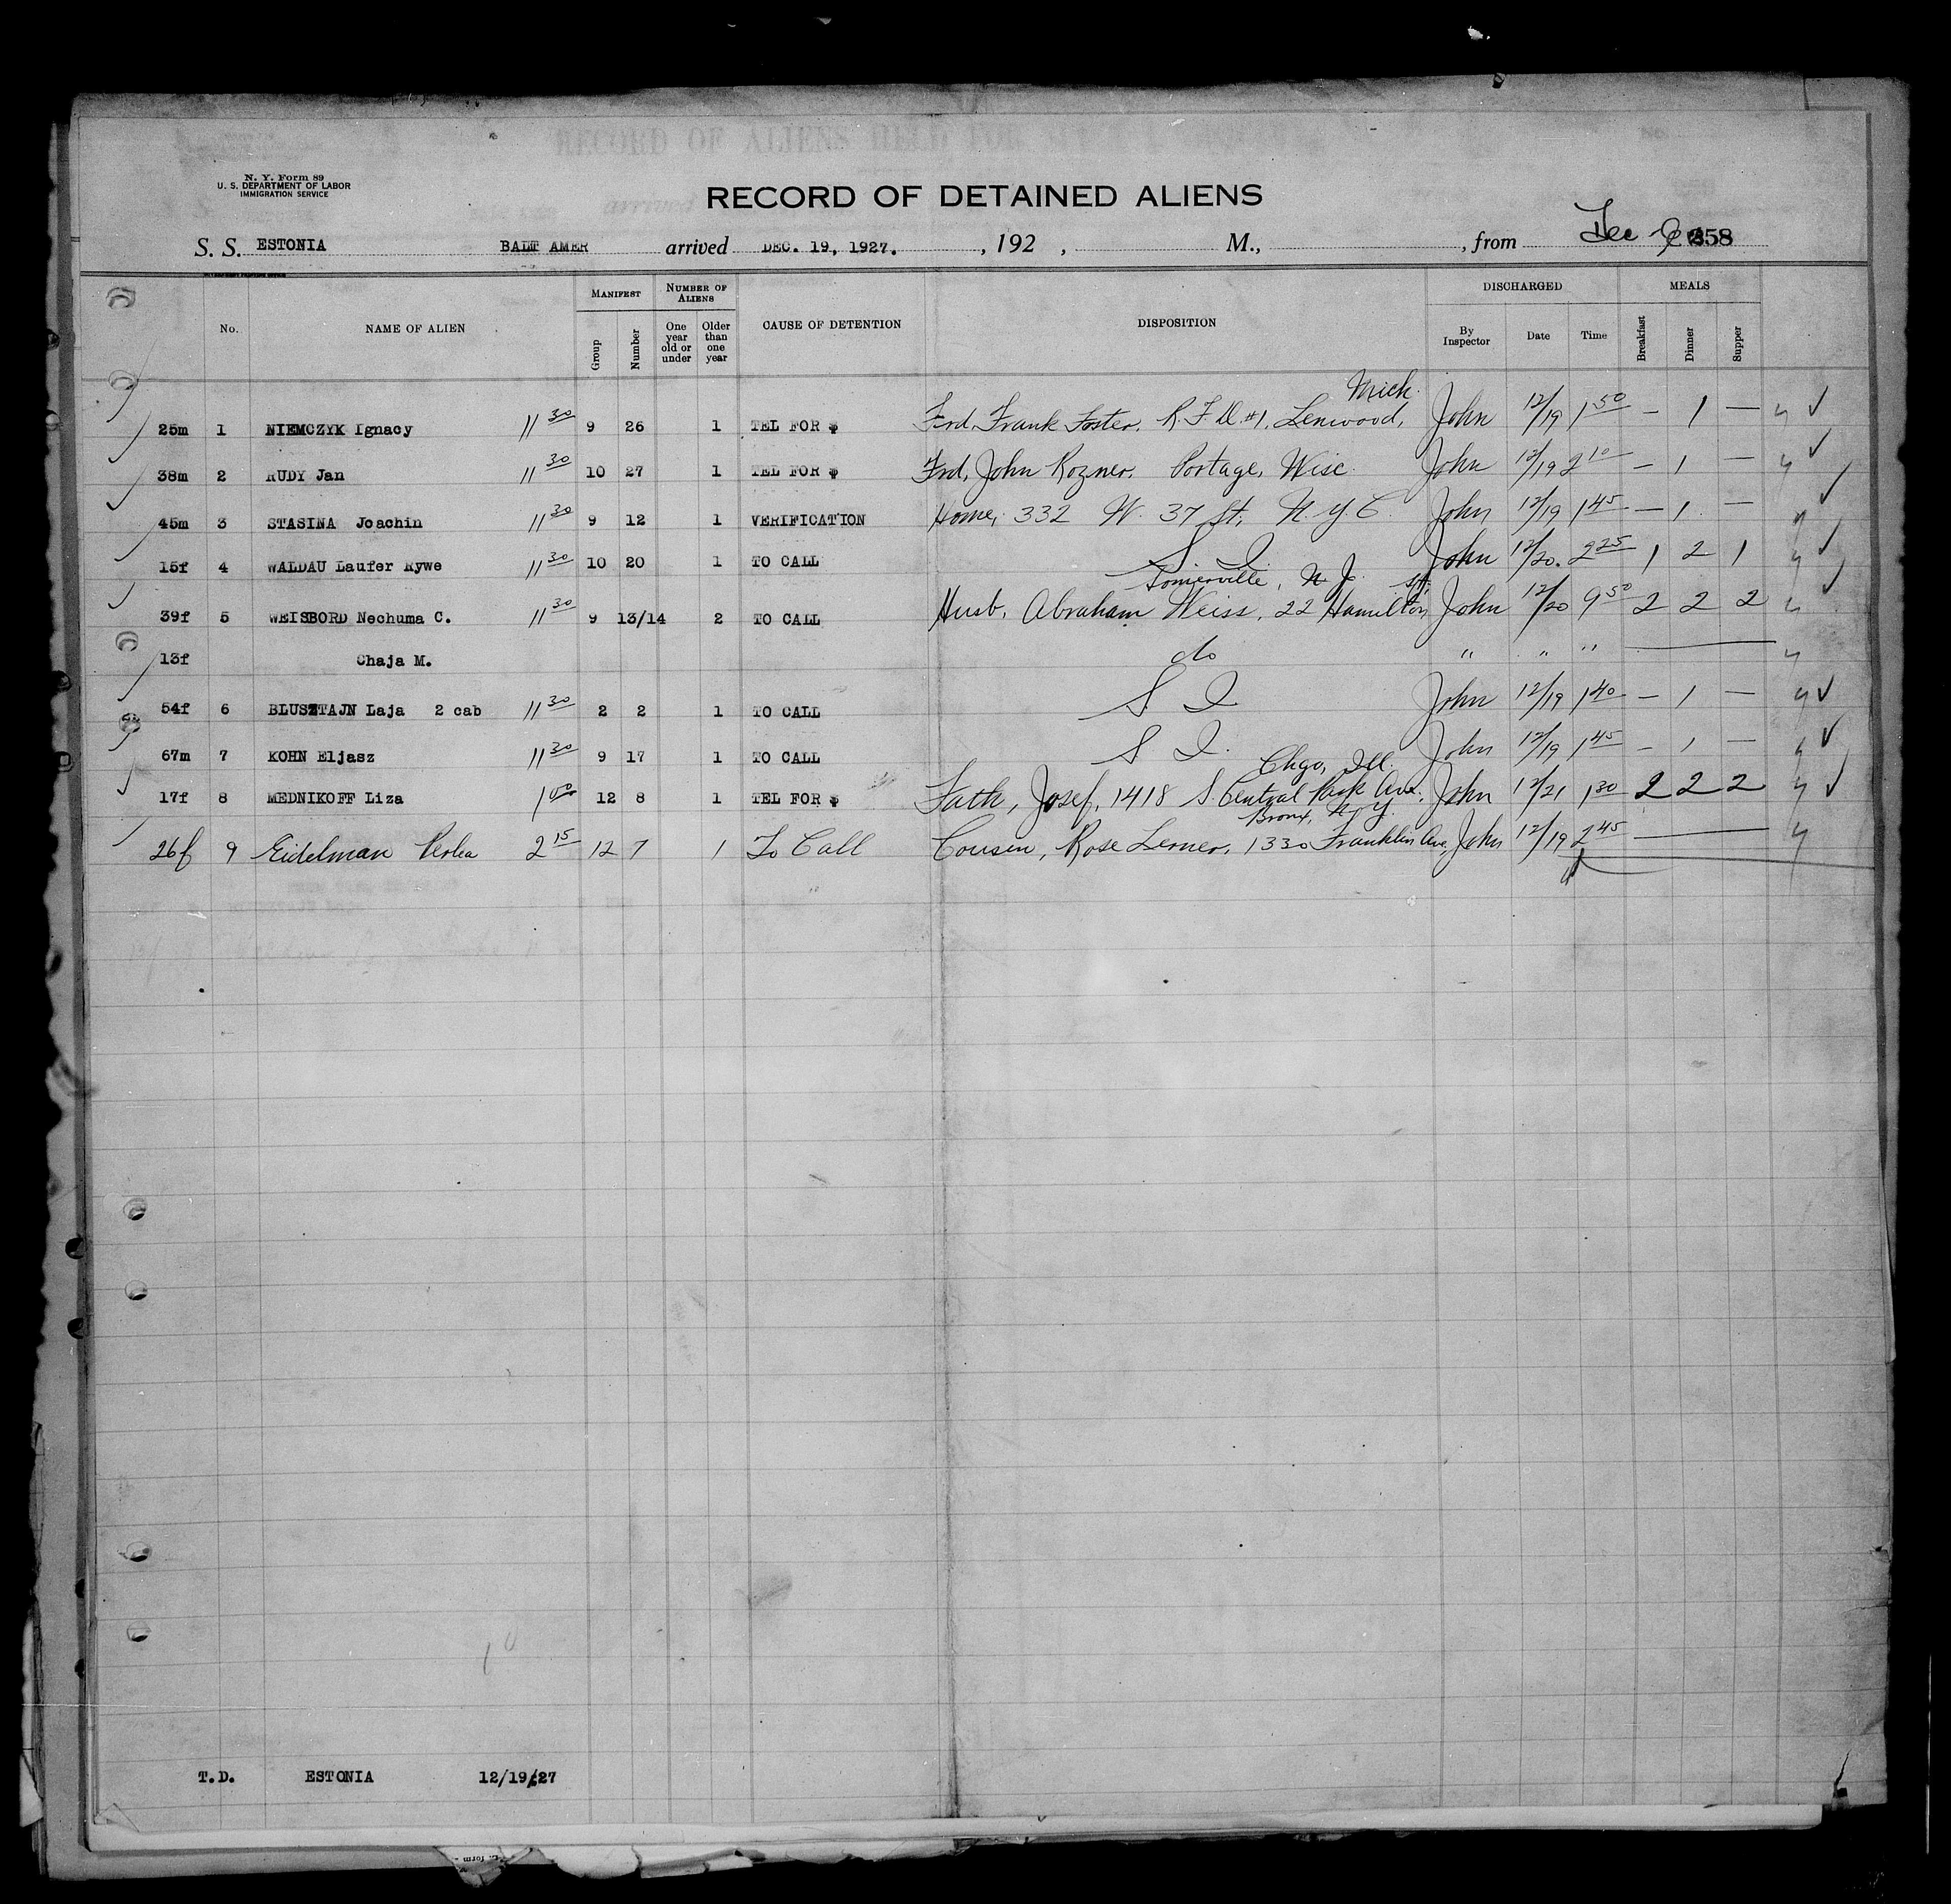 RECORD OF ALIENS HELD FOR
N. Y. Form 89
U. S. DEPARTMENT OF LABOR
IMMIGRATION SERVICE
RECORD OF DETAINED ALIENS
S. S. ESTONIA BALT AMER arrived DEC. 19, 1927. , 192 , M., , from Dec 358
No. NAME OF ALIEN MANIFEST Group Number NUMBER OF ALIENS One year old or under Older than one year CAUSE OF DETENTION DISPOSITION DISCHARGED By Inspector Date Time MEALS Breakfast Dinner Supper
Mich.
25m 1 NIEMCZYK Ignacy 11 30 9 26 1 TEL FOR $ Frd, Frank Foster, R.F.D. #1, Lenwood, John 12/19 1 50 — 1 —
38m 2 RUDY Jan 11 30 10 27 1 TEL FOR $ Frd, John Rozner, Portage, Wisc. John 12/19 2 10 — 1 —
45m 3 STASINA Joachin 11 30 9 12 1 VERIFICATION Home, 332 W. 37 St, N.Y.C John 12/19 1 45 — 1 —
15f 4 WALDAU Laufer Rywe 11 30 10 20 1 TO CALL S I John 12/20. 2 25 1 2 1
Somerville, N.J. St,
39f 5 WEISBORD Nechuma C. 11 30 9 13/14 2 TO CALL Husb, Abraham Weiss, 22 Hamilton John 12/20 9 50 2 2 2
13f Chaja M. do " " "
54f 6 BLUSZTAJN Laja 2 cab 11 30 2 2 1 TO CALL S I John 12/19 1 40 — 1 —
67m 7 KOHN Eljasz 11 30 9 17 1 TO CALL S I. John 12/19 1 45 — 1 —
Chgo, Ill.
17f 8 MEDNIKOFF Liza 1 00 12 8 1 TEL FOR $ Fath, Josef, 1418 S. Central Park Ave. John 12/21 1 30 2 2 2
Bronx, N.Y.
26f 9 Eidelman Perla 2 15 12 7 1 To Call Cousin, Rose Lerner, 1330 Franklin Ave, John 12/19 2 45 —
T.D. ESTONIA 12/19/27